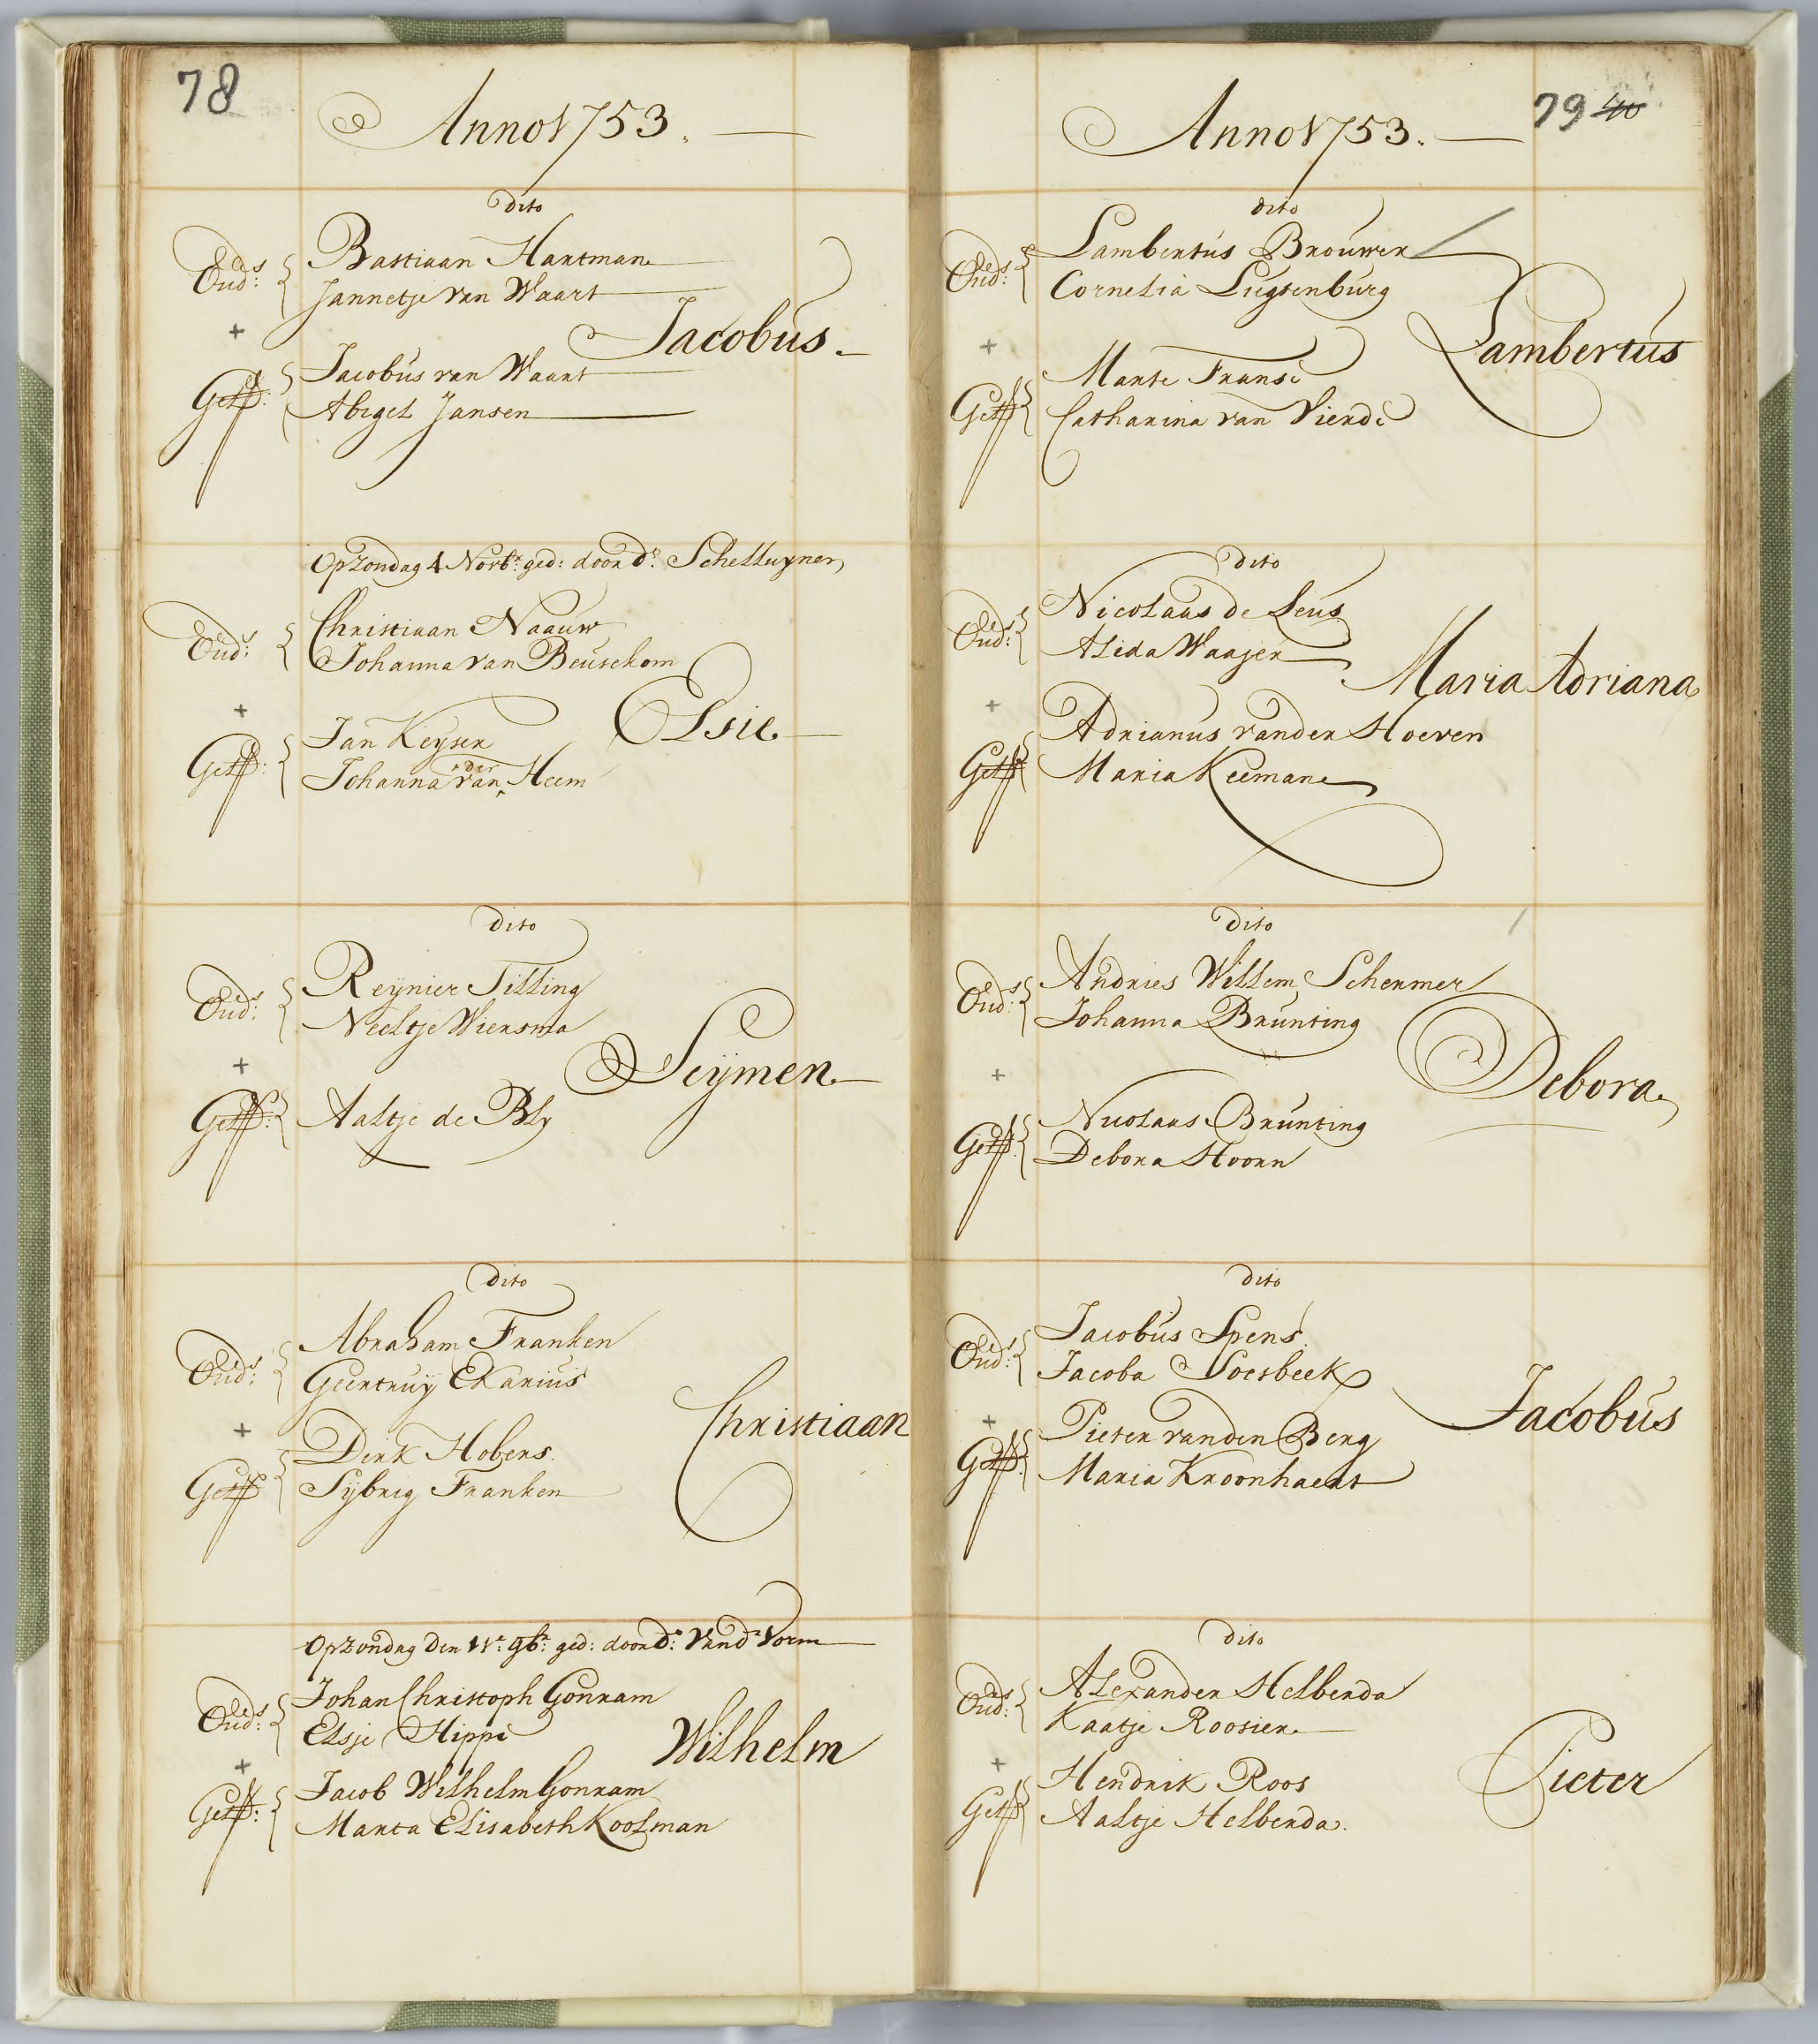 78
Anno 1753.
dito
Oud:s Bastiaan Hartman
Jannetje van Waart
Jacobus
+
Get: Jacobus van Waart
Abigel Jansen
Op Zondag 4 Novb:r ged: door d:s Schelluyner
Oud:s Christiaan Naauw
Johanna van Beusekom
+
Elsie
Get: Jan Keyser
Johanna van der Heem
dito
Oud:s Reynier Tilling
Neeltje Wiersma
+
Seijmen
Get: Aaltje de Bly
dito
Oud:s Abraham Franken
Geertruy Ekarius
+
Christiaan
Get: Dirk Hobens
Sijbrig Franken
Op Zondag den 11e: 9b:r ged: door d:s Vand Vorm
Oud:s Johan Christoph Gonram
Elsje Hippe
Wilhelm
+
Get: Jacob Wilhelm Gonram
Marta Elisabeth Koolman
79 40
Anno 1753.
dito
Oud:s Lambertus Brouwer
Cornelia Lugtenburg
+
Lambertus
Get: Marte Franse
Catharina van Vierde
dito
Oud:s Nicolaas de Leus
Alida Waajer
Maria Adriana
+
Get: Adrianus vander Hoeven
Maria Keeman
dito
Oud:s Andries Willem Schermer
Johanna Brunting
+
Debora
Get: Nicolaas Brunting
Debora Hoorn
dito
Oud:s Jacobus Spens
Jacoba Soesbeek
+
Jacobus
Get: Pieter vanden Berg
Maria Kroonhaert
dito
Oud:s Alexander Helberda
Kaatje Roosier
+
Pieter
Get: Hendrik Roos
Aaltje Helberda.